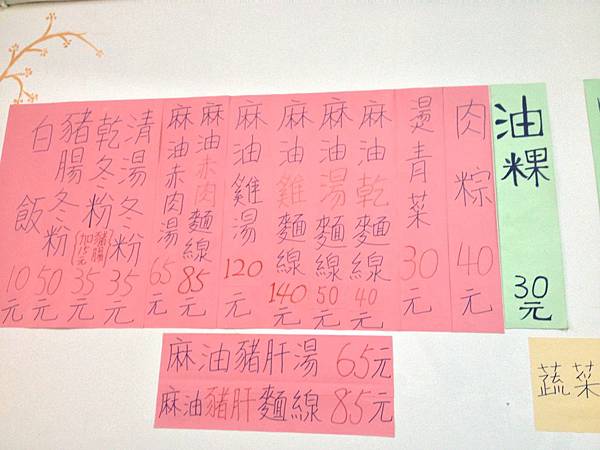 油粿 30元
肉粽 40元
燙青菜 30元
麻油乾麵線 40元
麻油湯麵線 50元
麻油雞麵線 140元
麻油雞湯 120元
麻油赤肉麵線 85元
麻油赤肉湯 65元
清湯冬粉 35元
乾冬粉(豬腸加15元) 35元
豬腸冬粉 50元
白飯 10元
麻油豬肝湯 65元
麻油豬肝麵線 85元
蔬菜